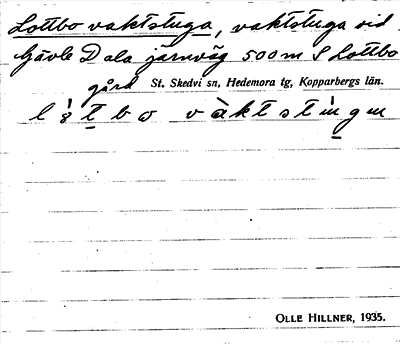 Lottbo vaktstuga, vaktstuga vid
Gävle Dala järnväg 500 m S Lottbo
gård St. Skedvi sn, Hedemora tg, Kopparbergs län.
OLLE HILLNER, 1935.